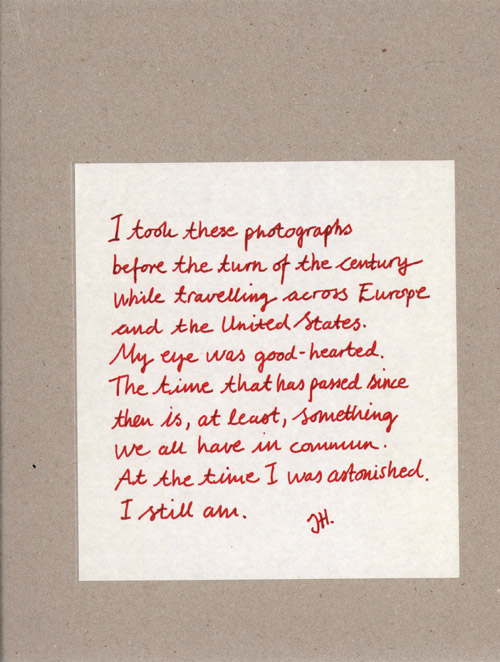 I took these photographs
before the turn of the century
while travelling across Europe
and the United States.
My eye was good-hearted.
The time that has passed since
then is, at least, something
we all have in commun.
At the time I was astonished.
I still am.
JH.